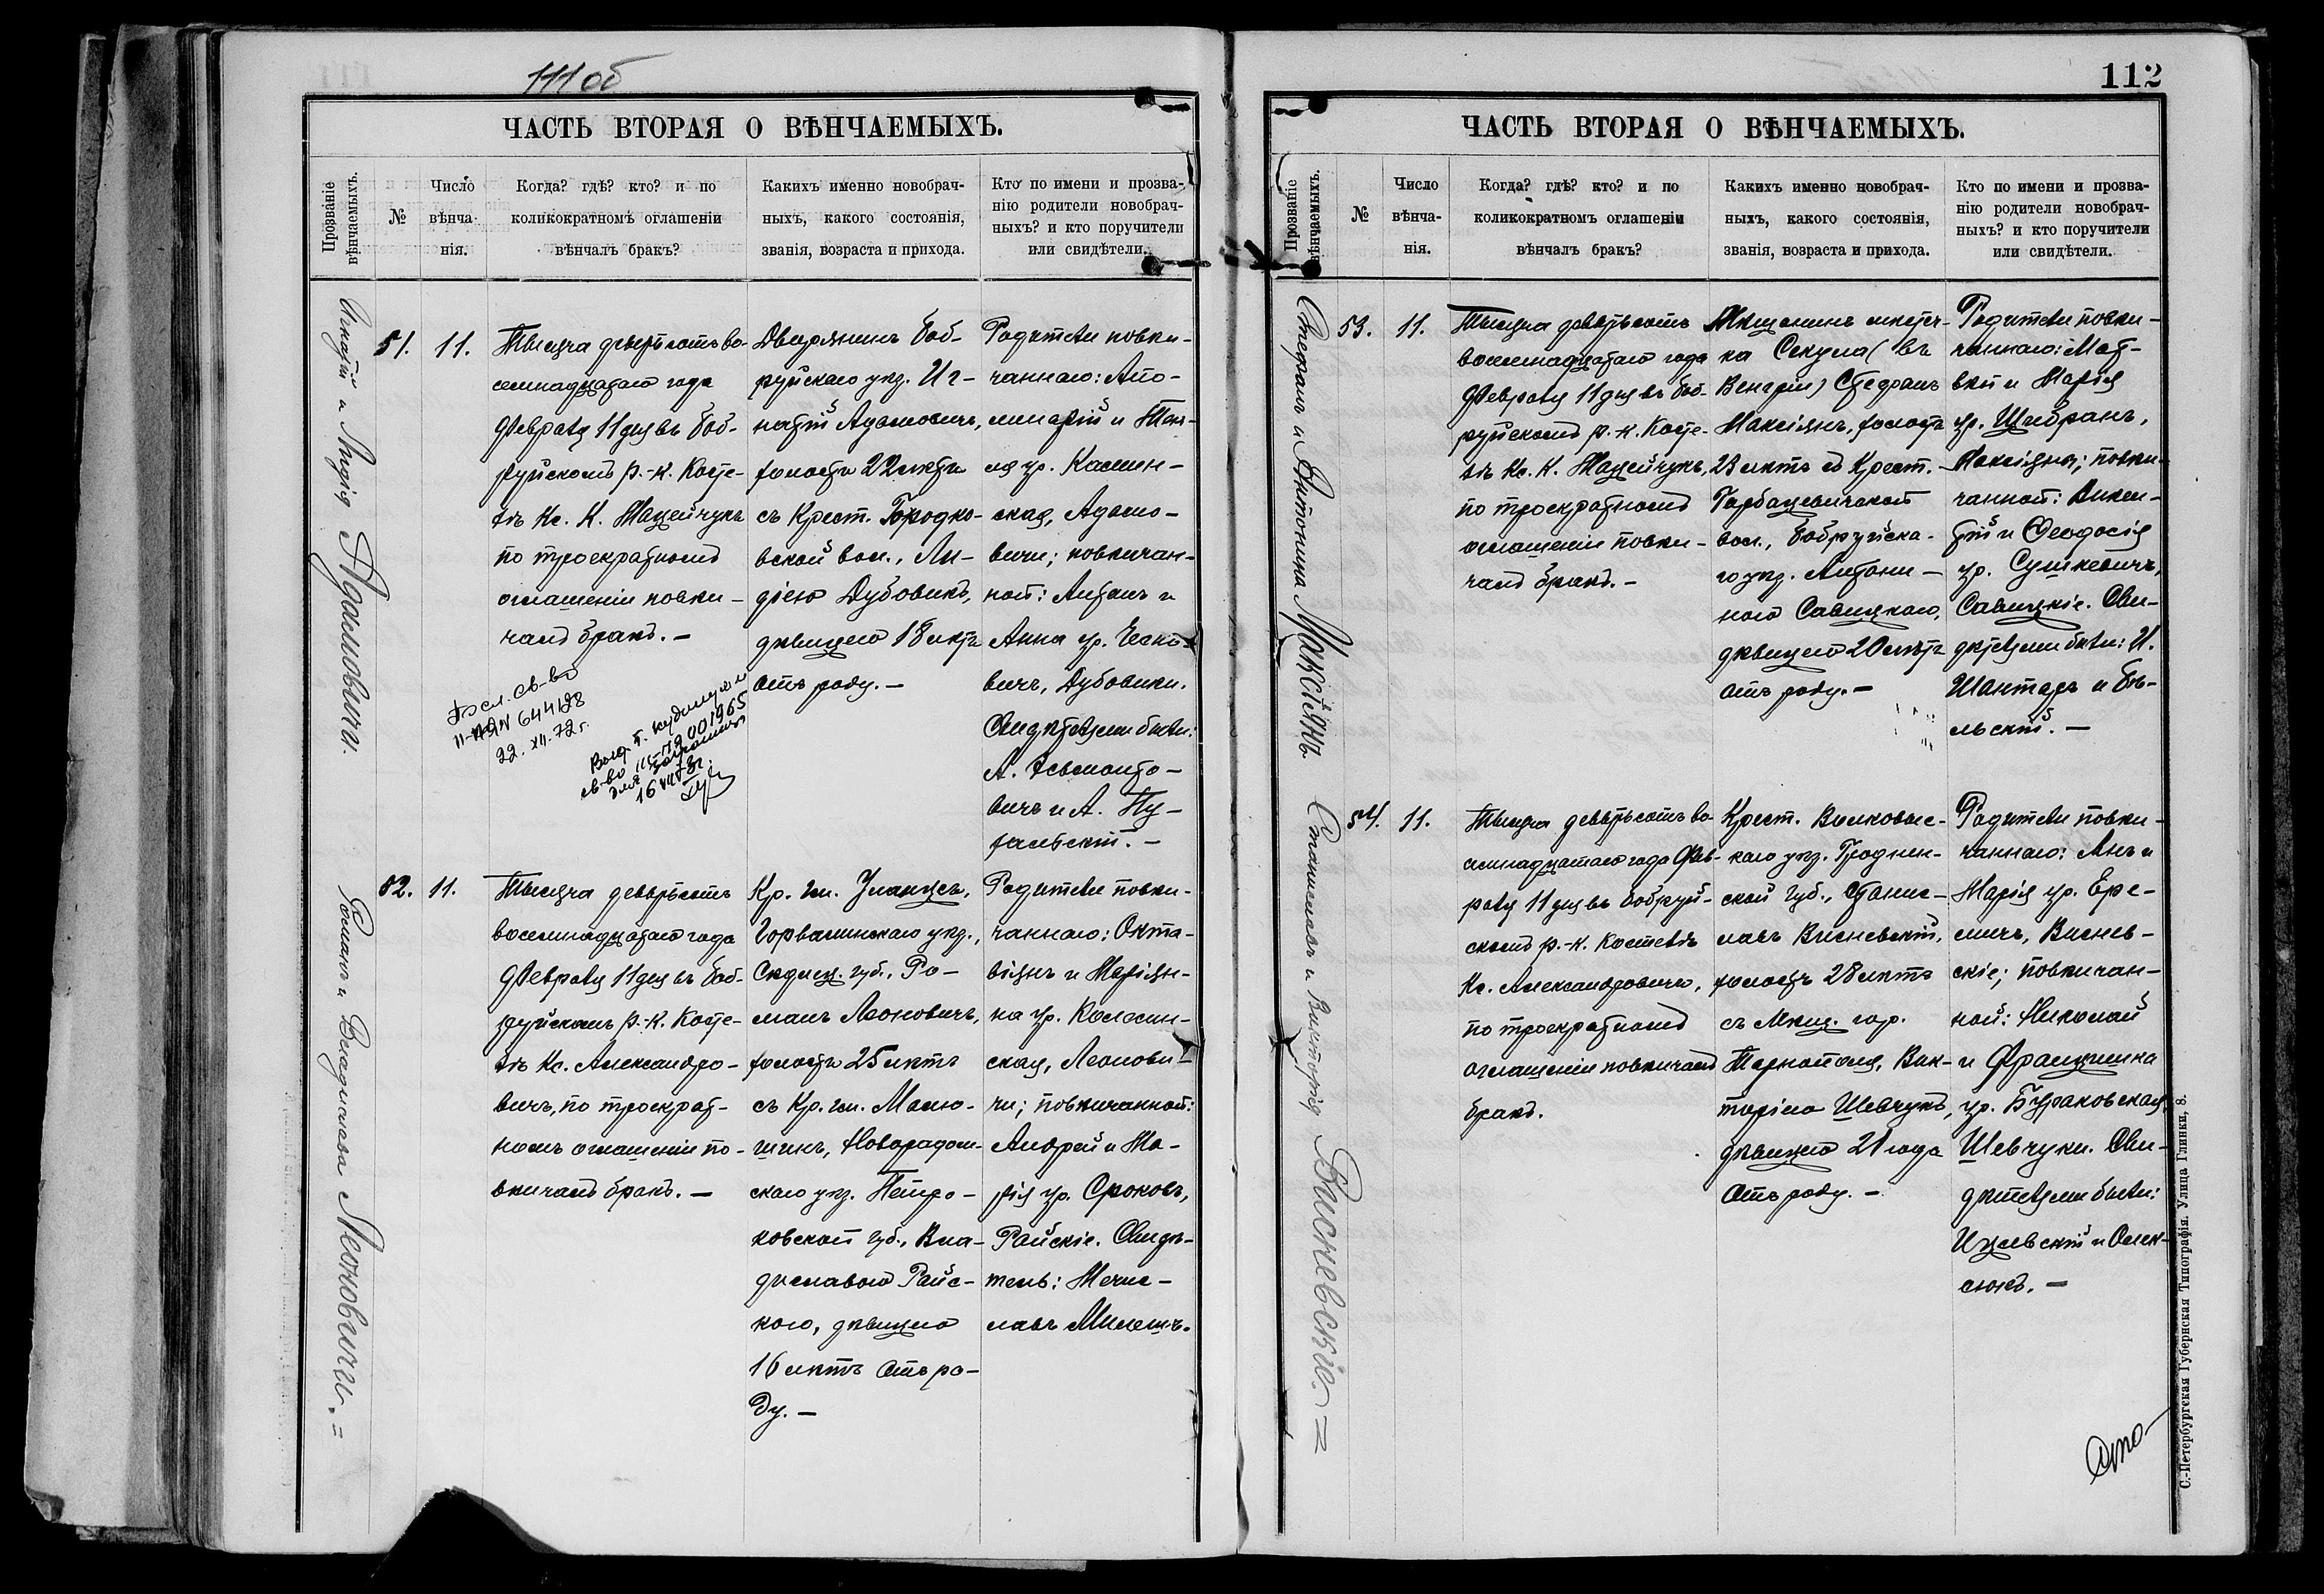 111 об
ЧАСТЬ ВТОРАЯ О ВѢНЧАЕМЫХЪ.
Прозваніе
вѣнчаемыхъ.
№
Число
вѣнча-
нія.
Когда? гдѣ? кто? и по
коликократномъ оглашеніи
вѣнчалъ бракъ?
Какихъ именно новобрач-
ныхъ, какого состоянія,
званія, возраста и прихода.
Кто по имени и прозва-
нію родители новобрач-
ныхъ? и кто поручители
или свидѣтели.
Игнатій и Лидія Адамовичи.
51.
11.
Тысяча девятьсотъ во-
семнадцатаго года
Февраля 11 дня въ Боб-
руйскомъ р.-к. Косте-
лѣ Кс. К. Мацейчукъ
по троекратномъ
оглашеніи повѣн-
чалъ бракъ. —
Дворянинъ Боб-
руйскаго уѣз. Иг-
натій Адамовичъ,
холостъ 22 лѣтъ
съ Крест. Городко-
вской вол., Ли-
діею Дубовикъ,
дѣвицею 18 лѣтъ
отъ роду. —
Родители повѣн-
чаннаго: Апо-
линарій и Текл-
ля ур. Камин-
ская, Адамо-
вичи; повѣнчан-
ной: Антонъ и
Анна ур. Еско-
вичъ, Дубовики.
Свидѣтелями были:
А. Эвьмонто-
вичъ и А. Пу-
хальскій. —
св-во
II-АЯ № 644128
22. XII. 72 г.
52.
11.
Романъ и Владислава Леоновичи. =
Тысяча девятьсотъ
восемнадцатаго года
Февраля 11 дня въ Боб-
руйскомъ р.-к. Косте-
лѣ Кс. Александро-
вичъ, по троекрат-
номъ оглашеніи по-
вѣнчалъ бракъ. —
Кр. гм. Уланцъ,
Горвалинскаго уѣз.,
Сѣдлец. губ., Ро-
манъ Леоновичъ,
холостъ 25 лѣтъ
съ Кр. гм. Малю-
шинъ, Новорадом-
скаго уѣз. Петро-
ковской губ., Вла-
диславою Райс-
кою, дѣвицею
16 лѣтъ отъ ро-
ду. —
Родители повѣн-
чаннаго: Окта-
віянъ и Маріян-
на ур. Колосин-
ская, Леонови-
чи; повѣнчанной:
Андрей и Ма-
рія ур. Сроковъ,
Райскіе. Свидѣ-
тель: Мечис-
лавъ Милешъ.
112
ЧАСТЬ ВТОРАЯ О ВѢНЧАЕМЫХЪ.
Прозваніе
вѣнчаемыхъ.
№
Число
вѣнча-
нія.
Когда? гдѣ? кто? и по
коликократномъ оглашеніи
вѣнчалъ бракъ?
Какихъ именно новобрач-
ныхъ, какого состоянія,
званія, возраста и прихода.
Кто по имени и прозва-
нію родители новобрач-
ныхъ? и кто поручители
или свидѣтели.
Стефанъ и Антонина Максіянъ.
53.
11.
Тысяча девятьсотъ
восемнадцатаго года
Февраля 11 дня въ Боб-
руйскомъ р.-к. Косте-
лѣ Кс. К. Мацейчукъ,
по троекратномъ
оглашеніи повѣн-
чалъ бракъ. —
Мѣщанинъ мѣстеч-
ка Секула (въ
Венгріи) Стефанъ
Максіянъ, холостъ
23 лѣтъ съ Крест.
Горбацевичской
вол., Бобруйска-
го уѣз. Антони-
ною Савицкою,
дѣвицею 20 лѣтъ
отъ роду. —
Родители повѣн-
чаннаго: Мат-
вѣй и Марія
ур. Щибранъ,
Максіяны; повѣн-
чанной: Викен-
тій и Ѳеодосія
ур. Сушкевичъ,
Савицкіе. Сви-
дѣтелями были: И.
Шантаръ и Бѣ-
льскій. —
Станиславъ и Викторія Висневскіе =
54.
11.
Тысяча девятьсотъ во-
семнадцатаго года Фев-
раля 11 дня въ Бобруй-
скомъ р.-к. Костелѣ
Кс. Александровичъ,
по троекратномъ
оглашеніи повѣнчалъ
бракъ.
Крест. Волковыс-
каго уѣз. Гроднен-
ской губ., Станис-
лавъ Висневскій,
холостъ 28 лѣтъ
съ Мѣщ. гор.
Тарнополя, Вик-
торіею Шевчукъ,
дѣвицею 21 года
отъ роду. —
Родители повѣн-
чаннаго: Янъ и
Марія ур. Ере-
мичъ, Виснев-
скіе; повѣнчан-
ной: Николай
и Францишка
ур. Бураковская,
Шевчуки. Сви-
дѣтелями были:
Ицевскій и Олек-
сюкъ. —
С.-Петербургская Губернская Типографія. Улица Глинки, 8.